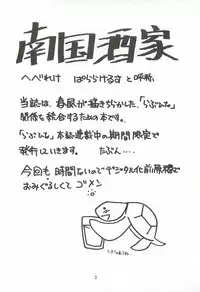 南国酒家
へべれけ ぱららけるす と呼称
当誌は、春風が描きちらかした、「らぶひな」
関係を統合するための本です。
「らぶひな」本誌連載中の期間限定で
発行しています。 たぶん…
今回も時間ないのでデジタル化前原稿で
おみぐるしくて ゴメン
3